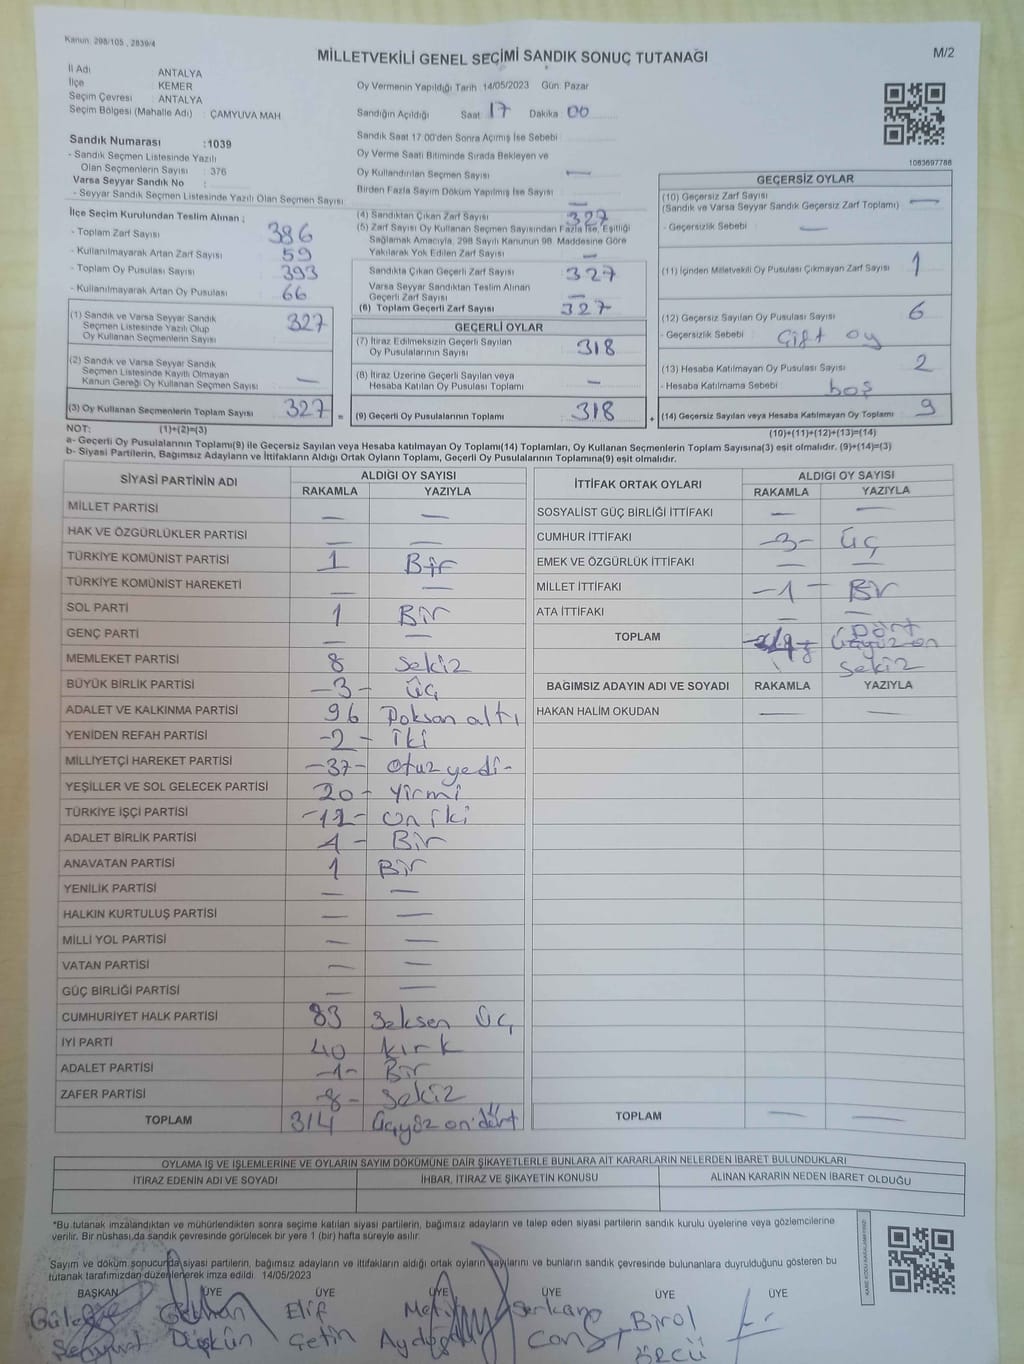 Kanun: 298/105 , 2839/4
MİLLETVEKİLİ GENEL SEÇİMİ SANDIK SONUÇ TUTANAĞI
M/2
İl Adı ANTALYA
İlçe KEMER
Seçim Çevresi ANTALYA
Seçim Bölgesi (Mahalle Adı) : ÇAMYUVA MAH
Oy Vermenin Yapıldığı Tarih 14/05/2023 Gün: Pazar
Sandığın Açıldığı Saat 17 Dakika : 00
Sandık Saat 17.00'den Sonra Açılmış İse Sebebi
Oy Verme Saati Bitiminde Sırada Bekleyen ve
Oy Kullandırılan Seçmen Sayısı —
Birden Fazla Sayım Döküm Yapılmış İse Sayısı —
1083697788
Sandık Numarası :1039
- Sandık Seçmen Listesinde Yazılı
Olan Seçmenlerin Sayısı : 376
Varsa Seyyar Sandık No :
- Seyyar Sandık Seçmen Listesinde Yazılı Olan Seçmen Sayısı
İlçe Seçim Kurulundan Teslim Alınan ;
- Toplam Zarf Sayısı 386
- Kullanılmayarak Artan Zarf Sayısı 59
- Toplam Oy Pusulası Sayısı 393
- Kullanılmayarak Artan Oy Pusulası 66
(1) Sandık ve Varsa Seyyar Sandık
Seçmen Listesinde Yazılı Olup
Oy Kullanan Seçmenlerin Sayısı 327
(2) Sandık ve Varsa Seyyar Sandık
Seçmen Listesinde Kayıtlı Olmayan
Kanun Gereği Oy Kullanan Seçmen Sayısı —
(3) Oy Kullanan Seçmenlerin Toplam Sayısı 327 =
(4) Sandıktan Çıkan Zarf Sayısı 327
(5) Zarf Sayısı Oy Kullanan Seçmen Sayısından Fazla İse, Eşitliği
Sağlamak Amacıyla, 298 Sayılı Kanunun 98. Maddesine Göre
Yakılarak Yok Edilen Zarf Sayısı —
Sandıkta Çıkan Geçerli Zarf Sayısı 327
Varsa Seyyar Sandıktan Teslim Alınan
Geçerli Zarf Sayısı —
(6) Toplam Geçerli Zarf Sayısı 327
GEÇERLİ OYLAR
(7) İtiraz Edilmeksizin Geçerli Sayılan
Oy Pusulalarının Sayısı 318
(8) İtiraz Üzerine Geçerli Sayılan veya
Hesaba Katılan Oy Pusulası Toplamı —
(9) Geçerli Oy Pusulalarının Toplamı 318 +
GEÇERSİZ OYLAR
(10) Geçersiz Zarf Sayısı
(Sandık ve Varsa Seyyar Sandık Geçersiz Zarf Toplamı) —
- Geçersizlik Sebebi : —
(11) İçinden Milletvekili Oy Pusulası Çıkmayan Zarf Sayısı 1
(12) Geçersiz Sayılan Oy Pusulası Sayısı 6
- Geçersizlik Sebebi : Çift oy
(13) Hesaba Katılmayan Oy Pusulası Sayısı 2
- Hesaba Katılmama Sebebi boş
(14) Geçersiz Sayılan veya Hesaba Katılmayan Oy Toplamı 9
NOT: (1)+(2)=(3)
(10)+(11)+(12)+(13)=(14)
a- Geçerli Oy Pusulalarının Toplamı(9) ile Geçersiz Sayılan veya Hesaba katılmayan Oy Toplamı(14) Toplamları, Oy Kullanan Seçmenlerin Toplam Sayısına(3) eşit olmalıdır. (9)+(14)=(3)
b- Siyasi Partilerin, Bağımsız Adayların ve İttifakların Aldığı Ortak Oyların Toplamı, Geçerli Oy Pusulalarının Toplamına(9) eşit olmalıdır.
SİYASİ PARTİNİN ADI ALDIĞI OY SAYISI
RAKAMLA YAZIYLA
MİLLET PARTİSİ — —
HAK VE ÖZGÜRLÜKLER PARTİSİ — —
TÜRKİYE KOMÜNİST PARTİSİ 1 Bir
TÜRKİYE KOMÜNİST HAREKETİ — —
SOL PARTİ 1 Bir
GENÇ PARTİ — —
MEMLEKET PARTİSİ 8 Sekiz
BÜYÜK BİRLİK PARTİSİ -3- Üç
ADALET VE KALKINMA PARTİSİ 96 Doksan altı
YENİDEN REFAH PARTİSİ -2- İki
MİLLİYETÇİ HAREKET PARTİSİ -37- Otuz yedi-
YEŞİLLER VE SOL GELECEK PARTİSİ 20- Yirmi
TÜRKİYE İŞÇİ PARTİSİ -12- on iki
ADALET BİRLİK PARTİSİ 1- Bir
ANAVATAN PARTİSİ 1 Bir
YENİLİK PARTİSİ — —
HALKIN KURTULUŞ PARTİSİ — —
MİLLİ YOL PARTİSİ — —
VATAN PARTİSİ — —
GÜÇ BİRLİĞİ PARTİSİ — —
CUMHURİYET HALK PARTİSİ 83 Seksen Üç
İYİ PARTİ 40 Kırk
ADALET PARTİSİ -1- Bir
ZAFER PARTİSİ -8- Sekiz
TOPLAM 314 Üçyüz on dört
İTTİFAK ORTAK OYLARI ALDIĞI OY SAYISI
RAKAMLA YAZIYLA
SOSYALİST GÜÇ BİRLİĞİ İTTİFAKI — —
CUMHUR İTTİFAKI -3- Üç
EMEK VE ÖZGÜRLÜK İTTİFAKI — —
MİLLET İTTİFAKI -1- Bir
ATA İTTİFAKI — —
TOPLAM Dört
Üçyüz on
Sekiz
BAĞIMSIZ ADAYIN ADI VE SOYADI RAKAMLA YAZIYLA
HAKAN HALİM OKUDAN — —
TOPLAM — —
OYLAMA İŞ VE İŞLEMLERİNE VE OYLARIN SAYIM DÖKÜMÜNE DAİR ŞİKAYETLERLE BUNLARA AİT KARARLARIN NELERDEN İBARET BULUNDUKLARI
İTİRAZ EDENİN ADI VE SOYADI İHBAR, İTİRAZ VE ŞİKAYETİN KONUSU ALINAN KARARIN NEDEN İBARET OLDUĞU
*Bu tutanak imzalandıktan ve mühürlendikten sonra seçime katılan siyasi partilerin, bağımsız adayların ve talep eden siyasi partilerin sandık kurulu üyelerine veya gözlemcilerine
verilir. Bir nüshası da sandık çevresinde görülecek bir yere 1 (bir) hafta süreyle asılır.
Sayım ve döküm sonucunda siyasi partilerin, bağımsız adayların ve ittifakların aldığı ortak oyların sayılarını ve bunların sandık çevresinde bulunanlara duyrulduğunu gösteren bu
tutanak tarafımızdan düzenlenerek imza edildi. 14/05/2023
BAŞKAN ÜYE ÜYE ÜYE ÜYE ÜYE ÜYE
Elif Serkan Birol
Düşkün Çetin Aydoğdu